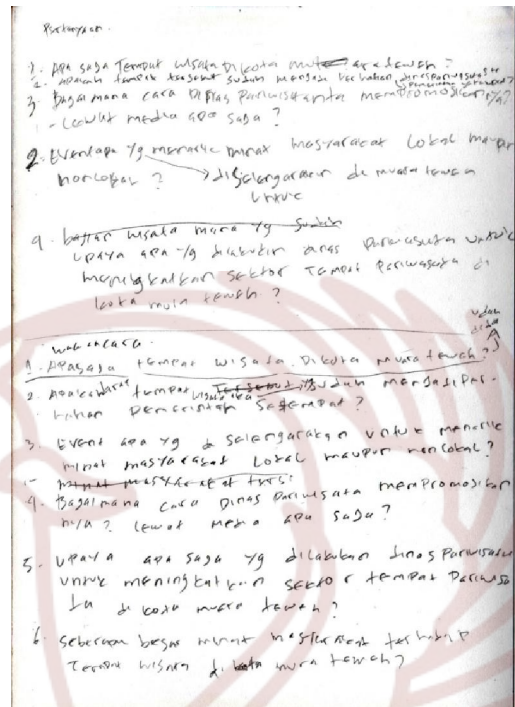 Pertanyaan.
1. Apa saja Tempat wisata Dikota muara teweh?
2. apakah tempat tersebut sudah menjadi perhatian
3. Bagaimana cara Dinas Pariwisata mempromosikannya?
- Lewat media apa saja?
2. Event apa yg menarik minat masyarakat Lokal maupun
nonlokal? diselenggarakan di muara teweh
untuk
4. daftar wisata mana yg sudah
upaya apa yg dilakukan dinas pariwisata untuk
meningkatkan sektor Tempat Pariwisata di
kota mura teweh?
wawancara.
1. Apa saja tempat wisata Dikota muara teweh?
2. Apakah tempat wisata tersebut sudah menjadi per-
hatian Pemerintah Setempat?
3. Event apa yg di selengarakan untuk menarik
minat masyarakat Lokal maupun nonlokal?
4. Bagaimana cara Dinas Pariwisata mempromosikan
nya? Lewat Media apa saja?
5. Upaya apa saja yg dilakukan dinas Pariwisata
untuk meningkatkan sektor tempat Pariwisa
ta di kota muara teweh?
6. seberapa besar minat masyarakat terhadap
Tempat wisata di kota mura teweh?